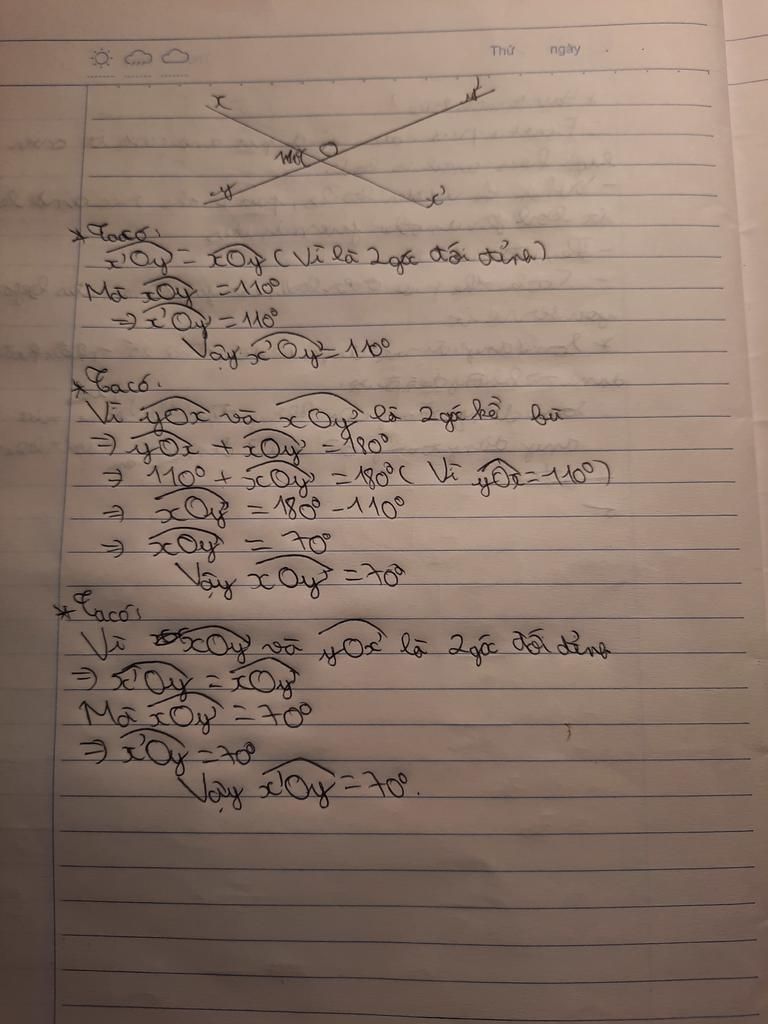 Thứ ngày
x y'
110° O
y x'
* Ta có:
x'Oy' = xOy (Vì là 2 góc đối đỉnh)
Mà xOy = 110°
⇒ x'Oy' = 110°
Vậy x'Oy' = 110°
* Ta có:
Vì yOx và xOy' là 2 góc kề bù
⇒ yOx + xOy' = 180°
⇒ 110° + xOy' = 180° ( Vì yOx = 110°)
⇒ xOy' = 180° - 110°
⇒ xOy' = 70°
Vậy xOy' = 70°
* Ta có:
Vì xOy' và yOx' là 2 góc đối đỉnh
⇒ x'Oy = xOy'
Mà xOy' = 70°
⇒ x'Oy = 70°
Vậy x'Oy = 70°.